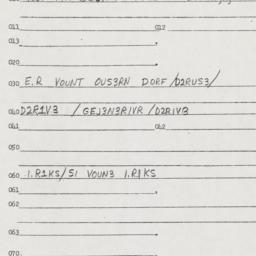 011 012
013
020
030 E.R VOUNT OUS3RN DORF/D2RUS3/
040 D2R1V3 /GEJ3N3RIVR/D2RIV3
041 042
050
060 I.R1KS/5I VOUN3 I.R1KS
061
062
063
070